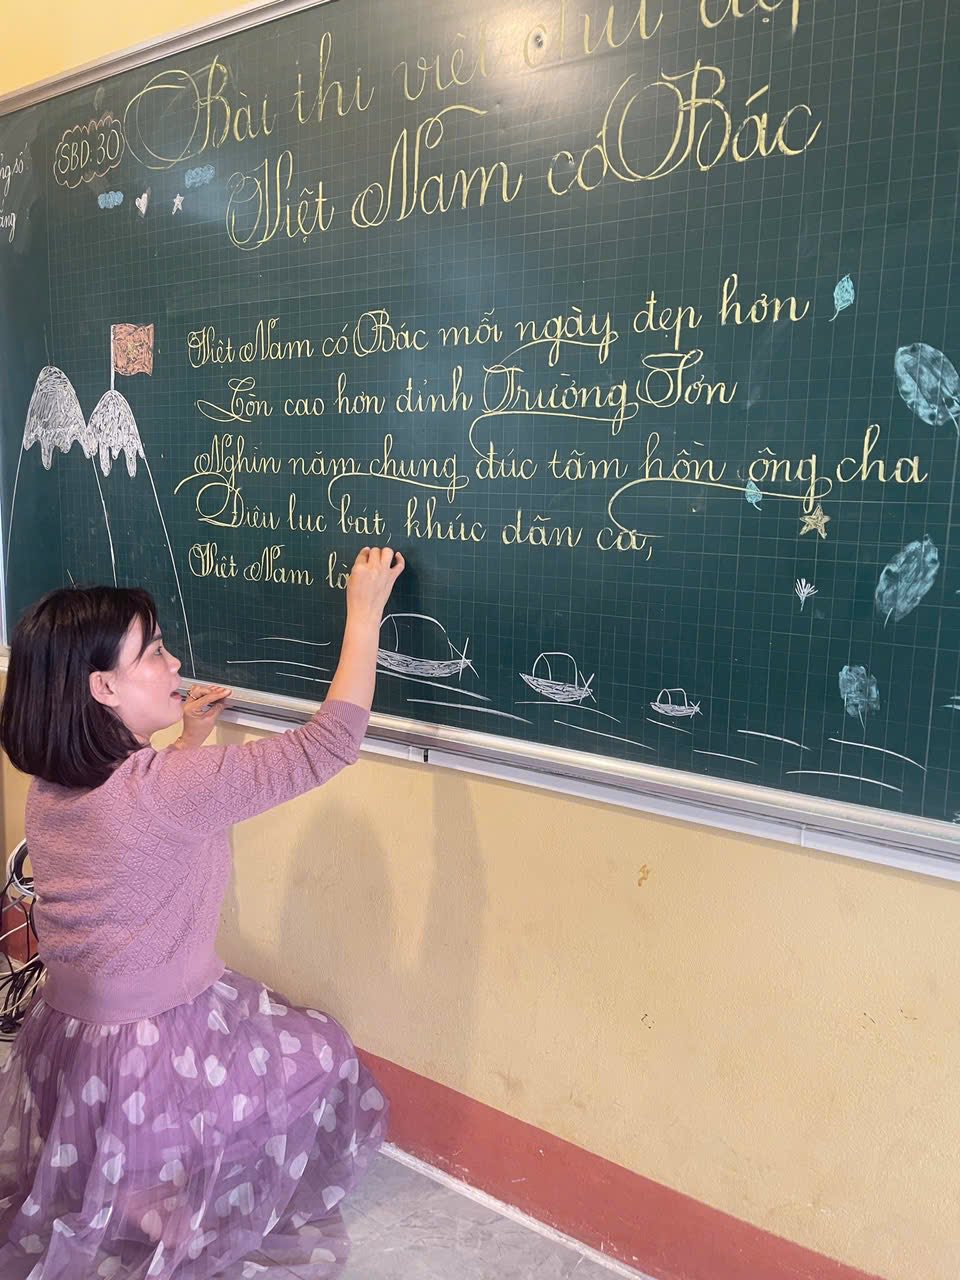 Bài thi viết chữ đẹp
SBD: 30
Việt Nam có Bác
Việt Nam có Bác mỗi ngày đẹp hơn
Còn cao hơn đỉnh Trường Sơn
Nghìn năm chung đúc tâm hồn ông cha
Điệu lục bát, khúc dân ca,
Việt Nam là